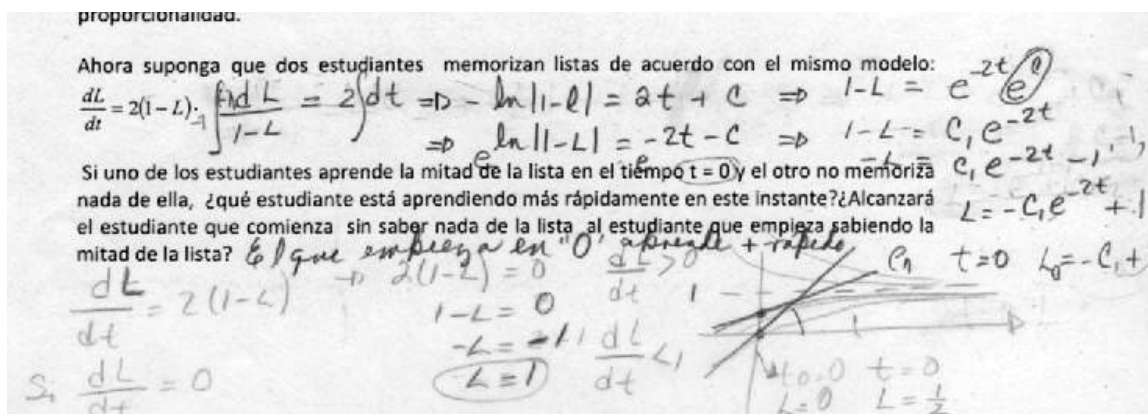 proporcionalidad.
Ahora suponga que dos estudiantes memorizan listas de acuerdo con el mismo modelo:
dL/dt = 2(1 – L). ∫ dL/(1-L) = 2∫dt ⇒ - ln|1-l| = 2t + c ⇒ 1-L = e^-2t e^c
⇒ ln|1-L| = -2t - c ⇒ 1-L = C₁e^-2t
-L = C₁e^-2t - 1
Si uno de los estudiantes aprende la mitad de la lista en el tiempo t = 0 y el otro no memoriza
nada de ella, ¿qué estudiante está aprendiendo más rápidamente en este instante?¿Alcanzará
L = -C₁e^-2t + 1
el estudiante que comienza sin saber nada de la lista al estudiante que empieza sabiendo la
mitad de la lista? El que empieza en "0" aprende + rápido
t=0 L₀=-C₁+
dL/dt = 2(1-L) ⇒ 2(1-L) = 0 dL/dt > 0 1
1-L = 0
-L = -1 dL/dt <
L=1
Si dL/dt = 0
t=0 L=0
t=0 L=1/2